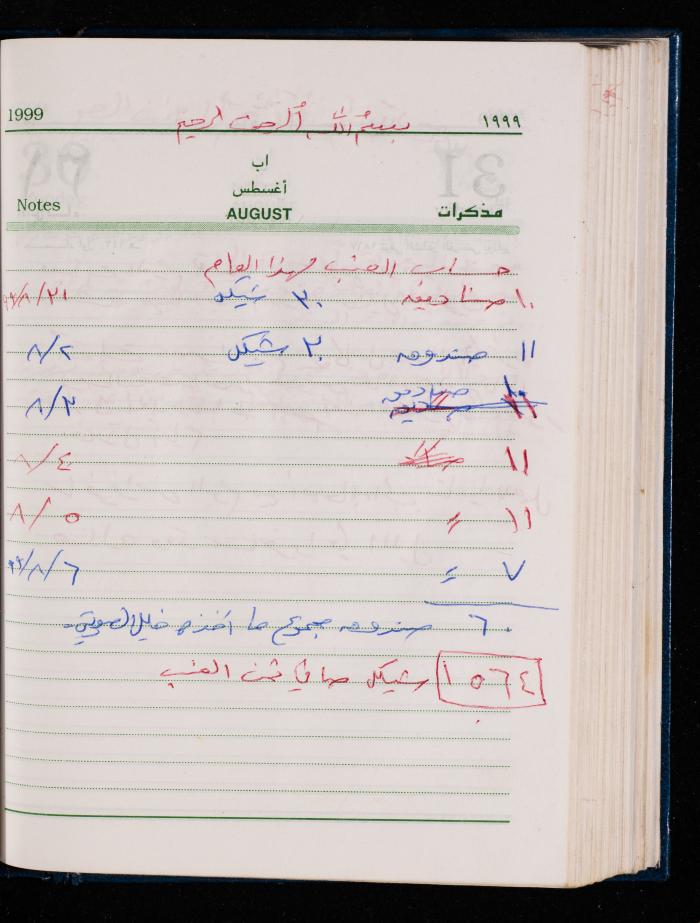 1999 بسم الله الرحمن الرحيم ١٩٩٩
اب
أغسطس
Notes AUGUST مذكرات
حساب العنب لهذا العام
١٠ صناديق ٣٠ شيكل ٢١/٨/٩٩
١١ صندوق ٣٠ شيكل ٨/٢
١٠ صناديق ٨/٣
١١ ٨/٤
١١ " ٨/٥
٧ " ٩٩/٨/٦
٦٠ صندوق مجموع ما أخذه خليل
١٥٦٤ شيكل صافي ثمن العنب